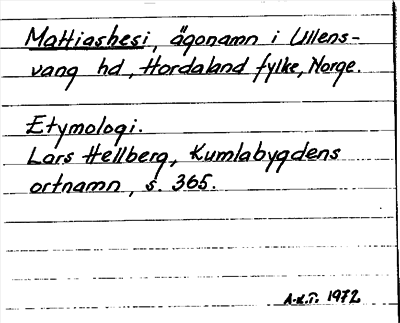 Mattiashesi, ägonamn i Ullens-
vang hd, Hordaland fylke, Norge.
Etymologi.
Lars Hellberg, Kumlabygdens
ortnamn, s. 365.
A-k.T. 1972